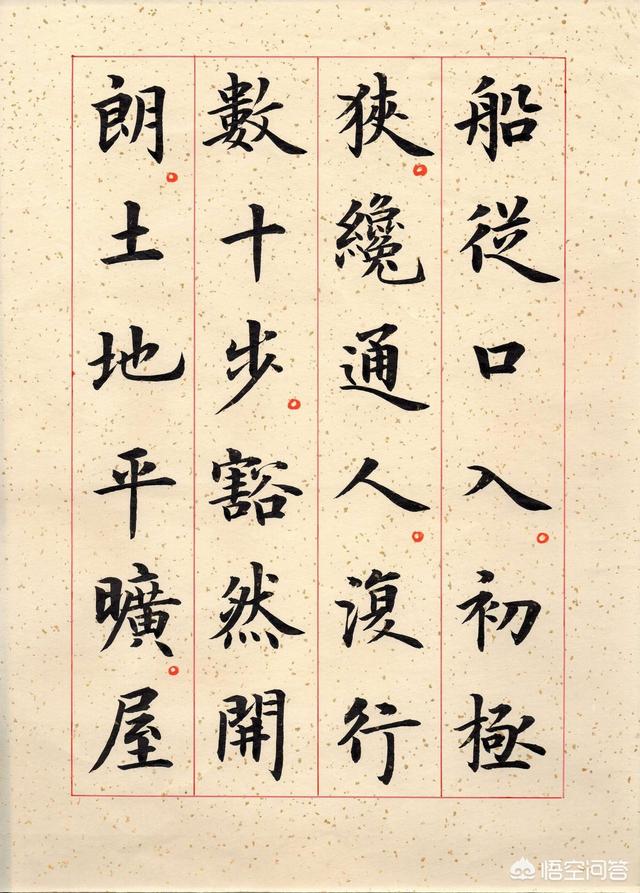 船從口入。初極
狹。纔通人。復行
數十步。豁然開
朗。土地平曠。屋
悟空问答